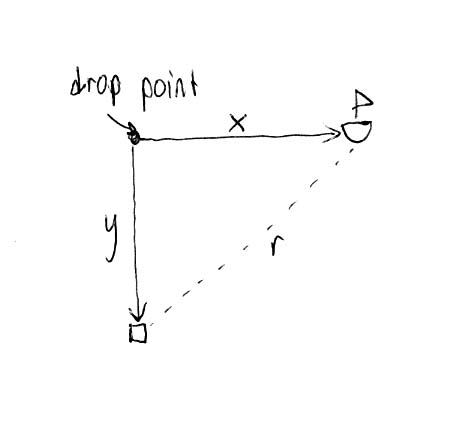 drop point
x
y
r